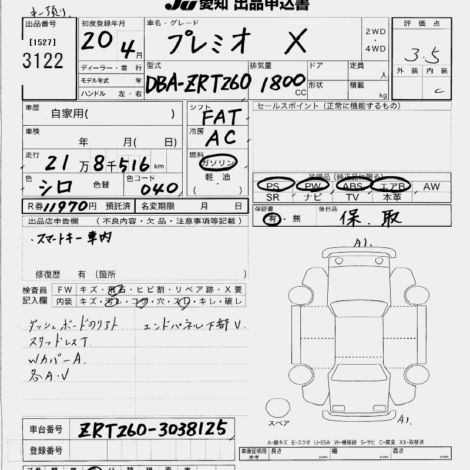 JU愛知 出品申込書
出品番号 初度登録年月 車名・グレード 評価点
[1527] 3122
20年4月
プレミオ X
2WD・4WD
3.5
外装 内装
C
ディーラー・並行
モデル年式 年
ハンドル 左・右
型式 DBA-ZRT260
排気量 1800 CC
ドア 形状
定員 人
積載 kg
車歴 自家用( )
シフト FAT
セールスポイント(正常に機能するもの)
車検 年 月( )
冷房 AC
走行 21万8千516km
燃料 ガソリン・軽油・
色 シロ 色替 色コード 040
PS PW ABS エアB AW
SR ナビ TV 本革
R券 11970円 預託済 名変期限 月 日
保証書 有・無 後日品 保、取
出品店申告欄 (不良内容・欠品・注意事項等記載)
・スマートキー車内
修復歴 有( )箇所
検査員記入欄
FW キズ・飛石・ヒビ割・リペア跡・X要
内装 キズ・汚レ・コゲ・穴・スレ・キレ・破レ
ダッシュボード
エンドパネル下部V
WカバーA
各A・V
A1
A1
スペア
A=線キズ E=エクボ U=凹み W=補修跡 S=サビ C=腐食 XX=交換済
車台番号 ZRT260-3038125
登録番号
車庫証明用参考
長さ cm 幅 cm 高さ cm